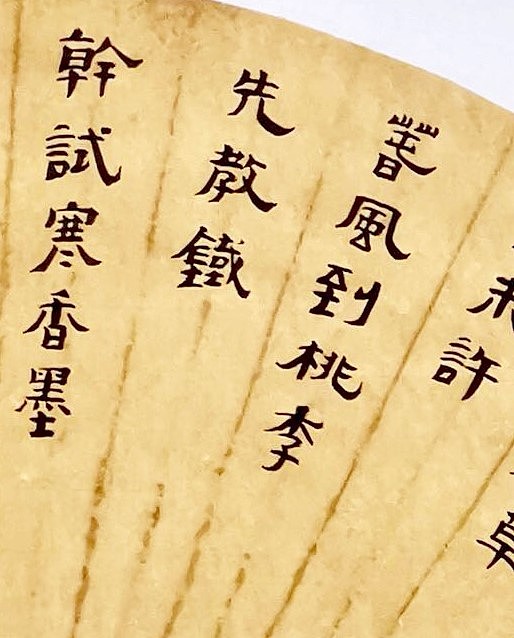 未許
春風到桃李
先教鐵
幹試寒香墨